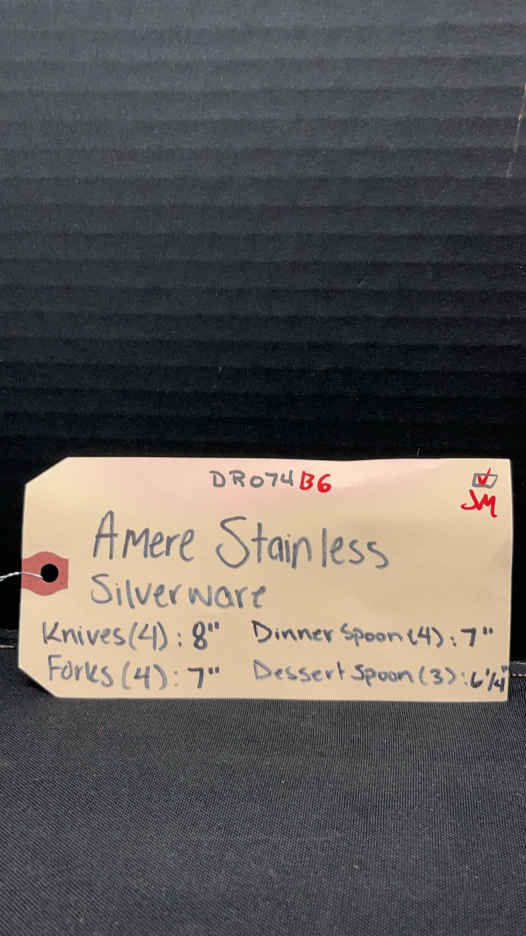 DR074B6
JM
Amere Stainless
Silverware
Knives(4): 8" Dinner Spoon(4): 7"
Forks(4): 7" Dessert Spoon(3): 6 1/4"